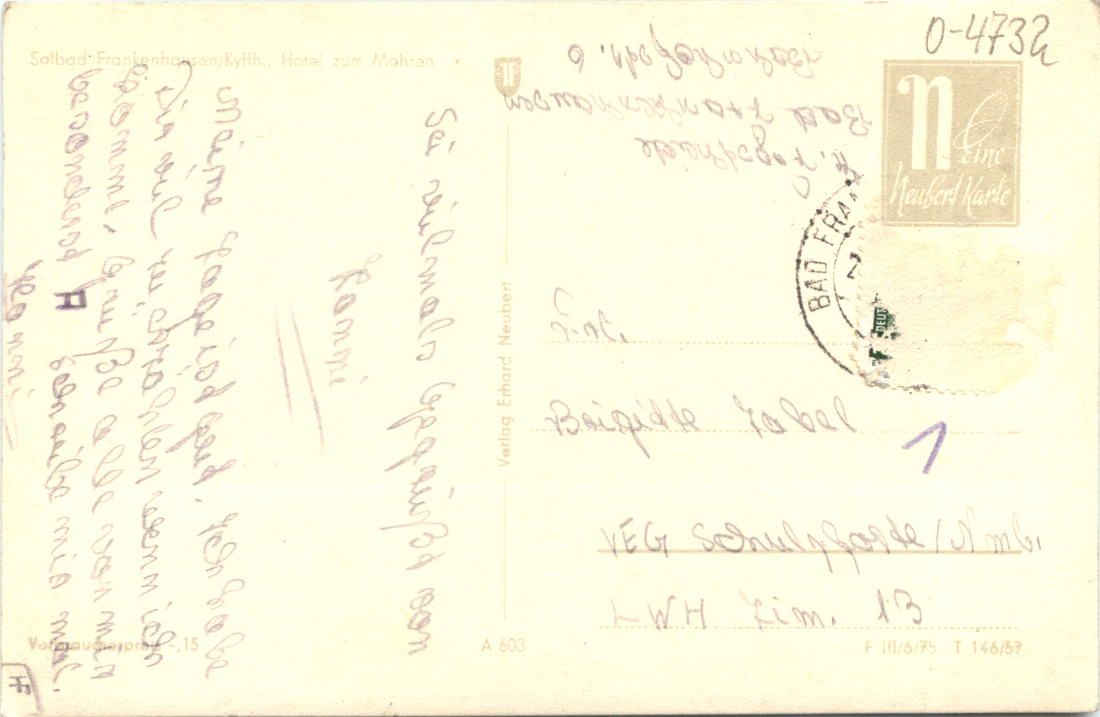 Solbad Frankenhausen/Kyffh., Hotel zum Mohren
0-4732
n
Eine
Neubert Karte
Bahnhofstr. 6
Bad Frankenhausen
BAD FRA
DEUT
Verlag Erhard Neubert
Frl.
Brigitte Zabel
1
VEG Schulpforte/Nmb.
LWH Zim. 13
Sei vielmals gegrüßt von
Konni
Meine Lage ist gut. Ich habe
Dir viel zu erzählen wenn ich
komme. Grüße alle von mir
besonders
Schreibe mir mal.
Konni
Verbraucherpreis -,15
A 603
F III/6/75 T 146/57